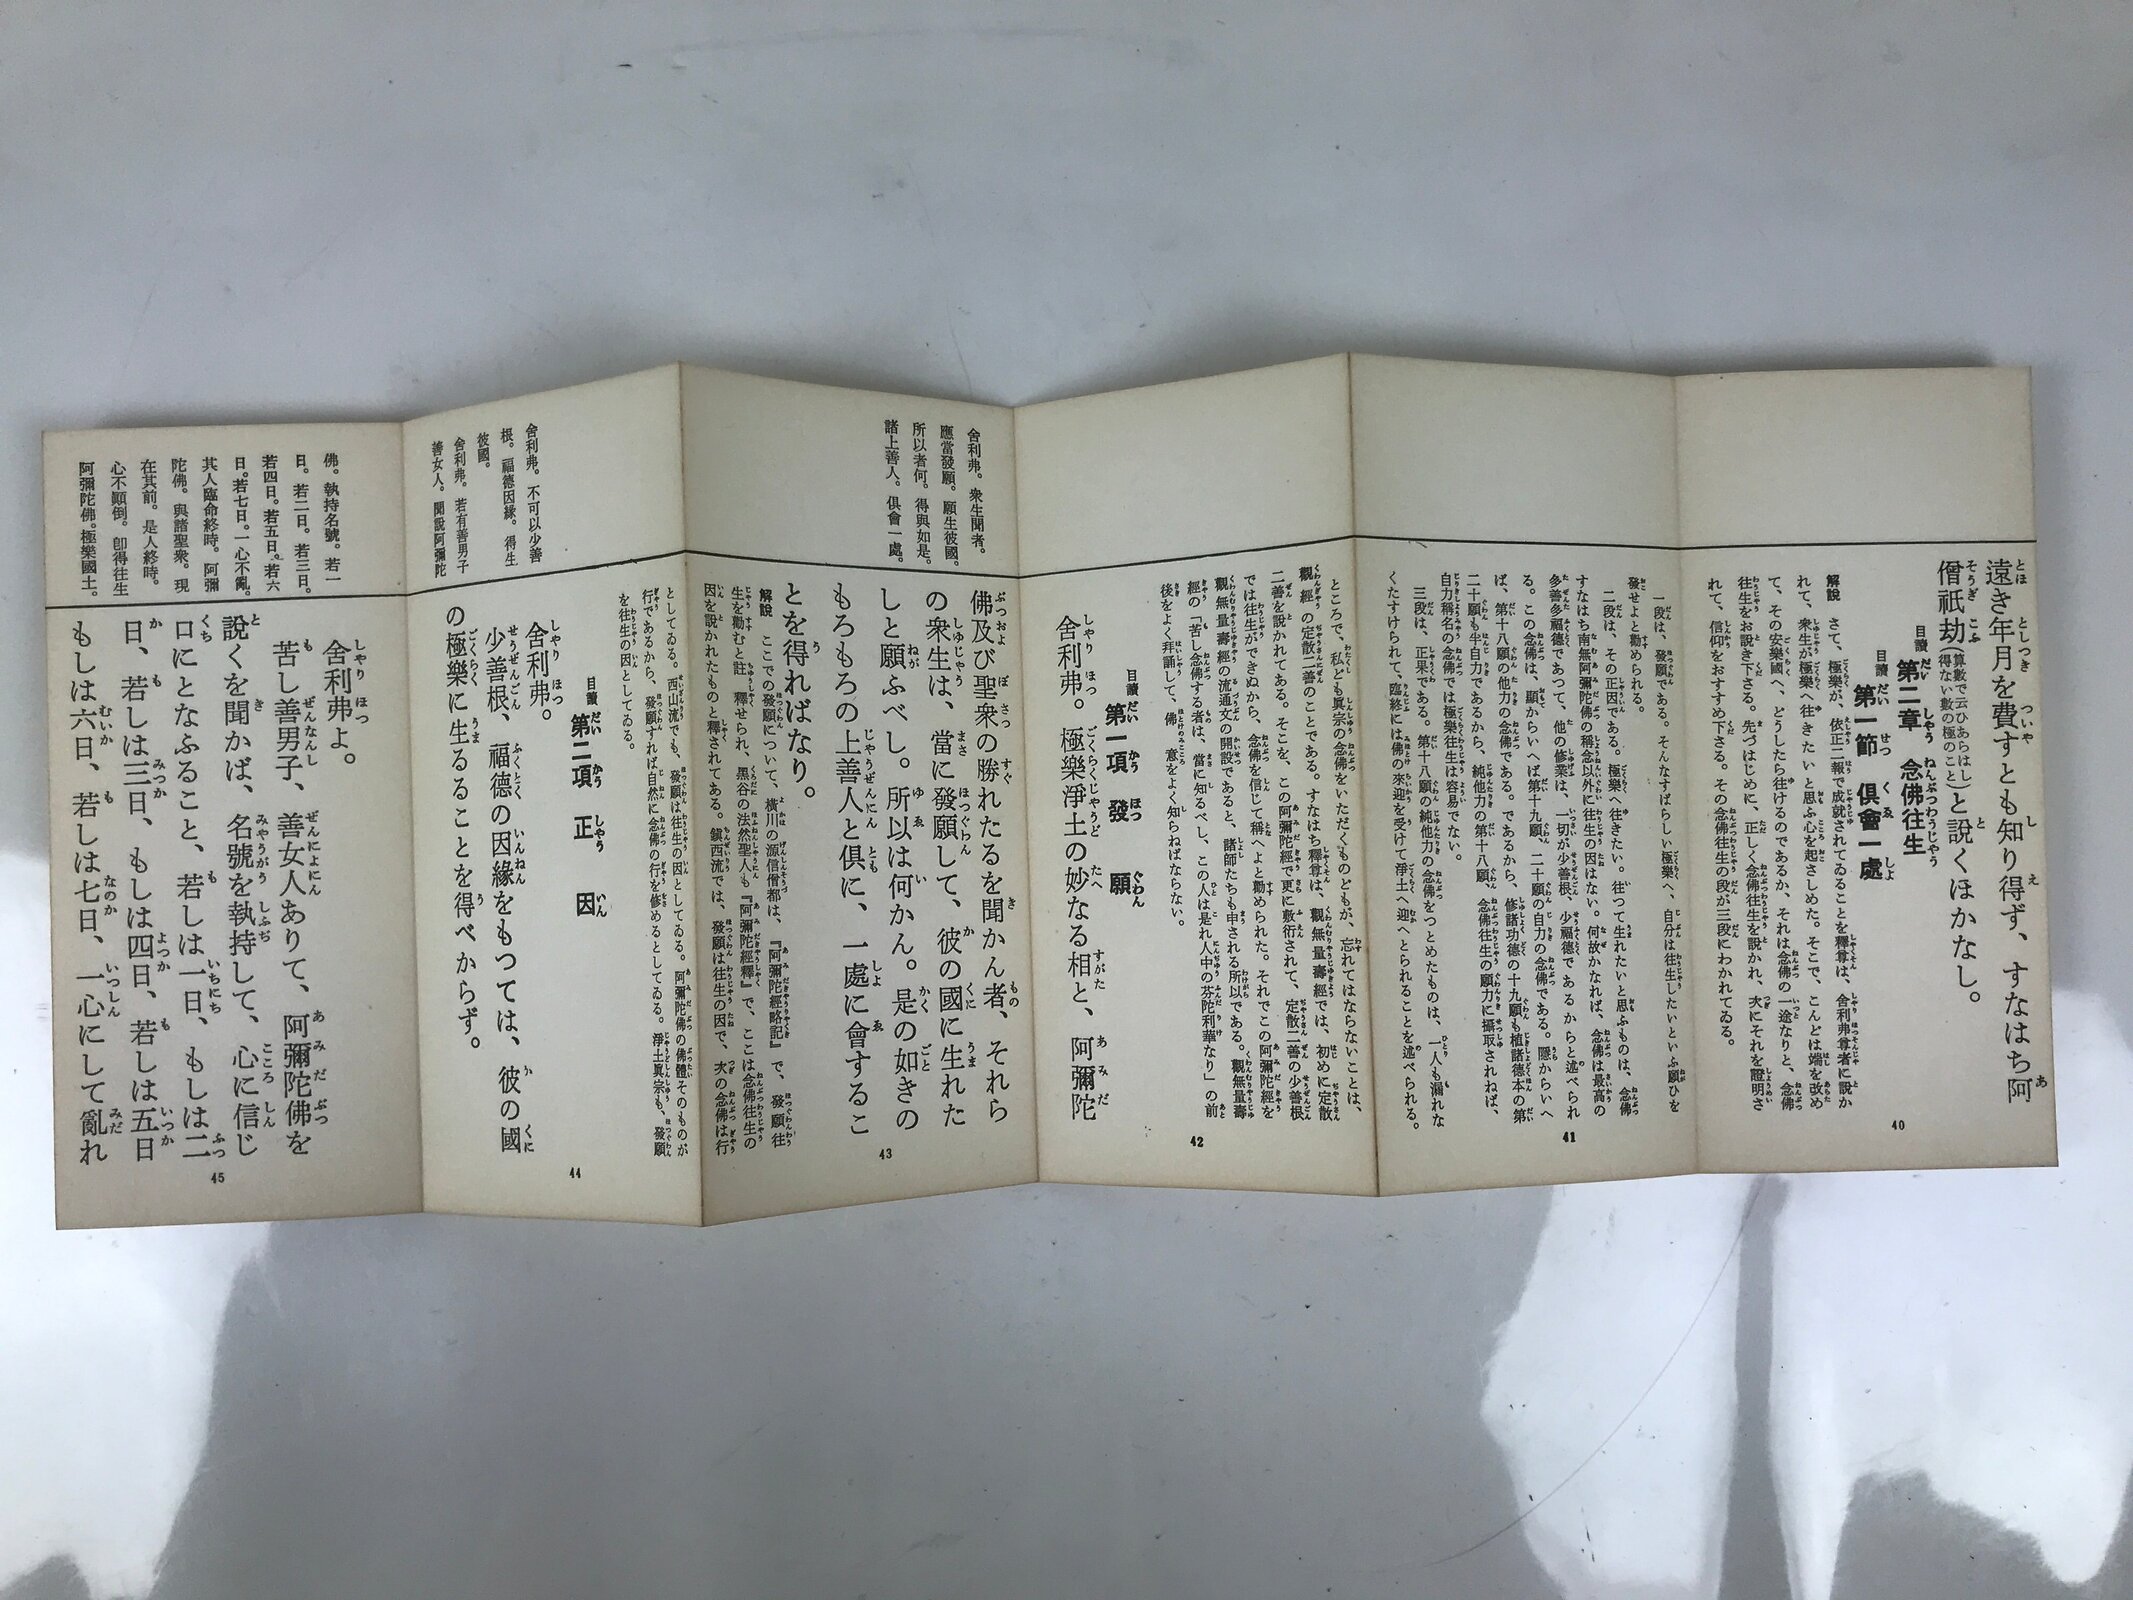 遠き年月を費すとも知り得ず、すなはち阿
僧祇劫(算數で云ひあらはし得ない數の極のこと)と説くほかなし。
目讀 第二章 念佛往生
目讀 第一節 倶會一處
解説 さて、極樂が、依正二報で成就されてゐることを釋尊は、舍利弗尊者に説か
れて、衆生が極樂へ往きたいと思ふ心を起さしめた。そこで、こんどは端を改め
て、その安樂國へ、どうしたら往けるのであるか、それは念佛の一途なりと、念佛
往生をお説き下さる。先づはじめに、正しく念佛往生を説かれ、次にそれを證明さ
れて、信仰をおすすめ下さる。その念佛往生の段が三段にわかれてゐる。
40
一段は、發願である。そんなすばらしい極樂へ、自分は往生したいといふ願ひを
發せよと勸められる。
二段は、その正因である。極樂へ往きたい。往つて生れたいと思ふものは、念佛
すなはち南無阿彌陀佛の稱念以外に往生の因はない。何故かなれば、念佛は最高の
多善多福德であつて、他の修業は、一切が少善根、少福德であるからと述べられ
る。この念佛は、顯からいへば第十九願、二十願の自力の念佛である。隱からいへ
ば、第十八願の他力の念佛である。であるから、修諸功德の十九願も植諸德本の第
二十願も半自力であるから、純他力の第十八願、念佛往生の願力に攝取されねば、
自力稱名の念佛では極樂往生は容易でない。
三段は、正果である。第十八願の純他力の念佛をつとめたものは、一人も漏れな
くたすけられて、臨終には佛の來迎を受けて淨土へ迎へとられることを述べられる。
41
ところで、私ども眞宗の念佛をいただくものどもが、忘れてはならないことは、
觀經の定散二善のことである。すなはち釋尊は、觀無量壽經では、初めに定散
二善を説かれてある。そこを、この阿彌陀經で更に敷衍されて、定散二善の少善根
では往生ができぬから、念佛を信じて稱へよと勸められた。それでこの阿彌陀經を
觀無量壽經の流通文の開設であると、諸師たちも申される所以である。觀無量壽
經の「若し念佛する者は、當に知るべし、この人は是れ人中の芬陀利華なり」の前
後をよく拜誦して、佛意をよく知らねばならない。
目讀 第一項 發願
舍利弗。極樂淨土の妙なる相と、阿彌陀
42
舍利弗。衆生聞者。
應當發願。願生彼國。
所以者何。得與如是。
諸上善人。倶會一處。
佛及び聖衆の勝れたるを聞かん者、それら
の衆生は、當に發願して、彼の國に生れた
しと願ふべし。所以は何かん。是の如きの
もろもろの上善人と倶に、一處に會するこ
とを得ればなり。
解説 ここでの發願について、横川の源信僧都は、『阿彌陀經略記』で、發願往
生を勸むと註釋せられ、黑谷の法然聖人も『阿彌陀經釋』で、ここは念佛往生の
因を説かれたものと釋されてある。鎭西流では、發願は往生の因で、次の念佛は行
43
としてゐる。西山流でも、發願は往生の因としてゐる。阿彌陀佛の佛體そのものが
行であるから、發願すれば自然に念佛の行を修めるとしてゐる。淨土眞宗も、發願
を往生の因としてゐる。
目讀 第二項 正因
舍利弗。不可以少善
根。福德因緣。得生
彼國。
舍利弗。若有善男子
善女人。聞説阿彌陀
舍利弗。
少善根、福德の因緣をもつては、彼の國
の極樂に生るることを得べからず。
44
佛。執持名號。若一
日。若二日。若三日。
若四日。若五日。若六
日。若七日。一心不亂。
其人臨命終時。阿彌
陀佛。與諸聖衆。現
在其前。是人終時。
心不顚倒。卽得往生
阿彌陀佛。極樂國土。
舍利弗よ。
若し善男子、善女人ありて、阿彌陀佛を
説くを聞かば、名號を執持して、心に信じ
口にとなふること、若しは一日、もしは二
日、若しは三日、もしは四日、若しは五日
もしは六日、若しは七日、一心にして亂れ
45